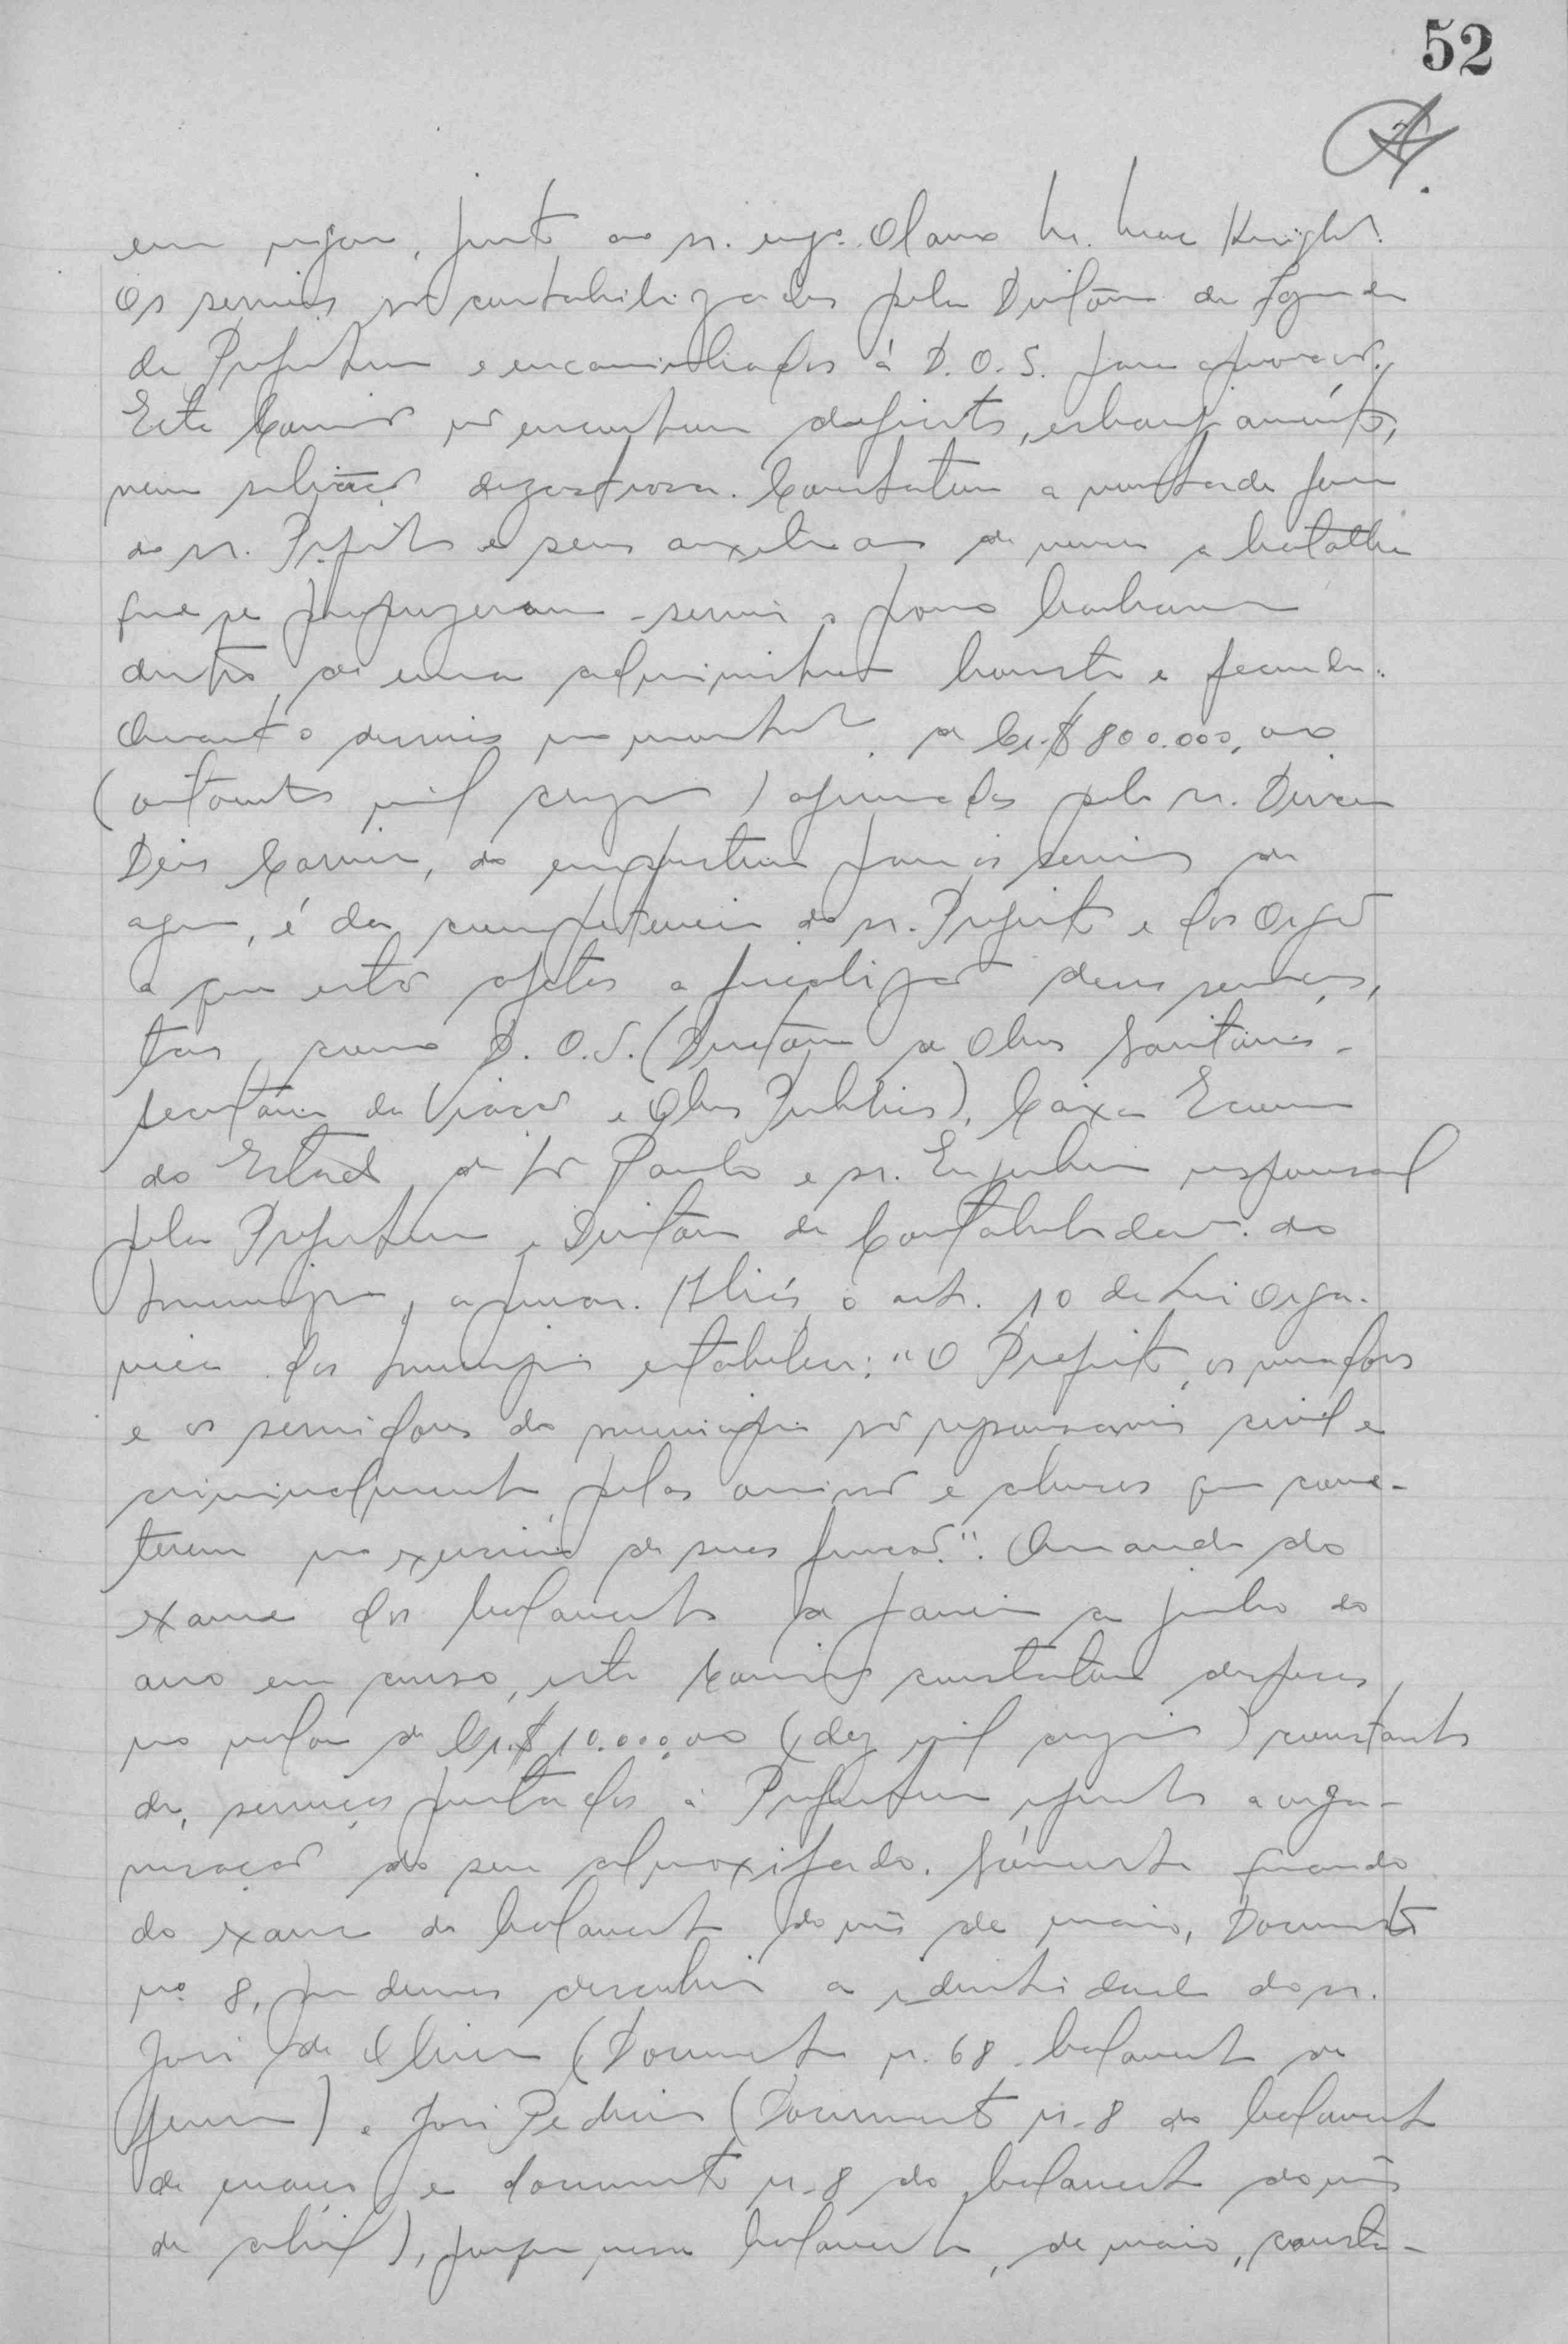 52
em vigor, junto ao sr. engº. Olavo M. Mac Knight.
Os serviços são contabilizados pela Diretoria da Fazenda
da Prefeitura e encaminhados á D. O. S. para aprovação.
Esta Comissão não encontrou desperdicio, esbanjamento,
nem situação dezastrosa. Constatou a vontade
do sr. Prefeito e seus auxiliares de vencer a batalha
que se propuzeram - servir o povo
dentro de uma administração honesta e fecunda.
Quanto o desvio no montante de Cr.$ 800.000,00
(oitocentos mil cruzeiros) afirmados pelo sr. Dirceu
Déis Carneiro, do emprestimo para os serviços de
agua, é da competencia do sr. Prefeito e dos orgãos
a que estão afetos a fiscalização desses serviços,
tais como D. O. S. (Diretoria de Obras Sanitárias -
Secretária da Viação e Obras Publicas), Caixa Economica
do Estado de São Paulo e sr. Engenheiro responsavel
pela Prefeitura e Diretoria da Contabilidade do
Municipio, apurar. Aliás o art. 10 da Lei Orga-
nica dos Municipios estabelece: "O Prefeito, os vereadores
e os servidores do municipio são responsaveis civil e
criminalmente pelas omissões e abusos que come-
terem no exercicio de suas funções". Quando do
exame dos balancetes de janeiro a junho do
ano em curso, esta Comissão constatou despesas
no valor de Cr.$ 10.000,00 (dez mil cruzeiros) constantes
de serviços prestados á Prefeitura referente a orga-
nização do seu almoxarifado. Sómente quando
do exame do balancete do mês de maio, Documento
nº 8, pudemos descobrir a identidade do sr.
José de Oliveira (Documento n. 68 balancete de
janeiro) e José Pedreira (Documento n. 8 do balancete
de março e documento n. 8 do balancete do mês
de abril), porque nesse balancete, de maio, consta-